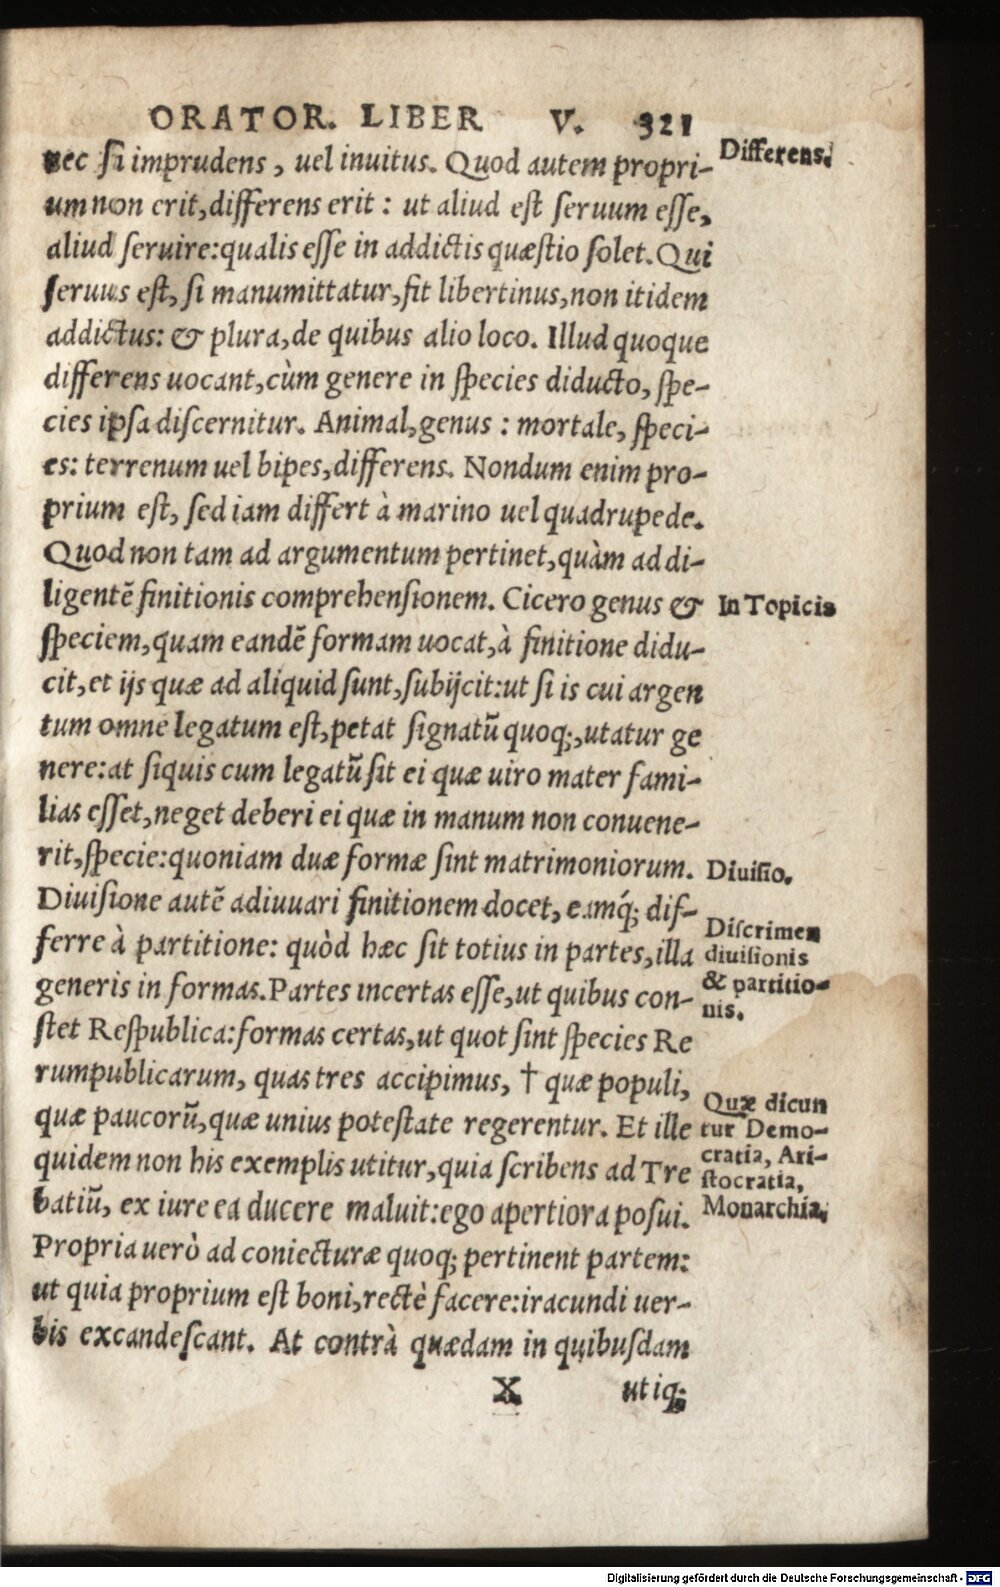 ORATOR. LIBER V. 321
nec si imprudens, uel inuitus. Quod autem propri-
Differens.
um non erit, differens erit: ut aliud est seruum esse,
aliud seruire: qualis esse in addictis quæstio solet. Qui
seruus est, si manumittatur, fit libertinus, non itidem
addictus: & plura, de quibus alio loco. Illud quoque
differens uocant, cùm genere in species diducto, spe-
cies ipsa discernitur. Animal, genus: mortale, speci-
es: terrenum uel bipes, differens. Nondum enim pro-
prium est, sed iam differt à marino uel quadrupede.
Quod non tam ad argumentum pertinet, quàm ad di-
ligentē finitionis comprehensionem. Cicero genus &
In Topicis
speciem, quam eandē formam uocat, à finitione didu-
cit, et ijs quæ ad aliquid sunt, subijcit: ut si is cui argen
tum omne legatum est, petat signatū quoq;, utatur ge
nere: at siquis cum legatū sit ei quæ uiro mater fami-
lias esset, neget deberi ei quæ in manum non conuene-
rit, specie: quoniam duæ formæ sint matrimoniorum.
Diuisio.
Diuisione autē adiuuari finitionem docet, eamq́; dif-
ferre à partitione: quòd hæc sit totius in partes, illa
Discrimen
diuisionis
& partitio-
nis.
generis in formas. Partes incertas esse, ut quibus con-
stet Respublica: formas certas, ut quot sint species Re
rumpublicarum, quas tres accipimus, † quæ populi,
quæ paucorū, quæ unius potestate regerentur. Et ille
Quæ dicun
tur Demo-
cratia, Ari-
stocratia,
Monarchia.
quidem non his exemplis utitur, quia scribens ad Tre
batiū, ex iure ea ducere maluit: ego apertiora posui.
Propria uerò ad coniecturæ quoq; pertinent partem:
ut quia proprium est boni, rectè facere: iracundi uer-
bis excandescant. At contrà quædam in quibusdam
X utiq;
Digitalisierung gefördert durch die Deutsche Forschungsgemeinschaft - DFG